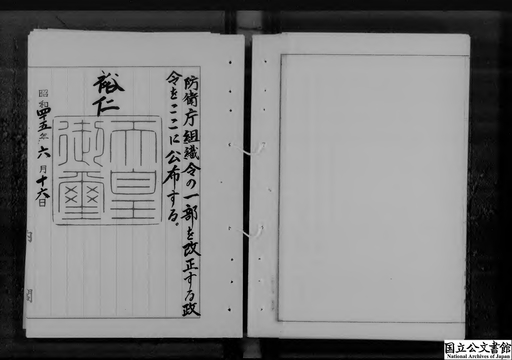 防衛庁組織令の一部を改正する政
令をここに公布する。
裕仁
天皇
御璽
昭和四十五年六月十六日
国立公文書館
National Archives of Japan